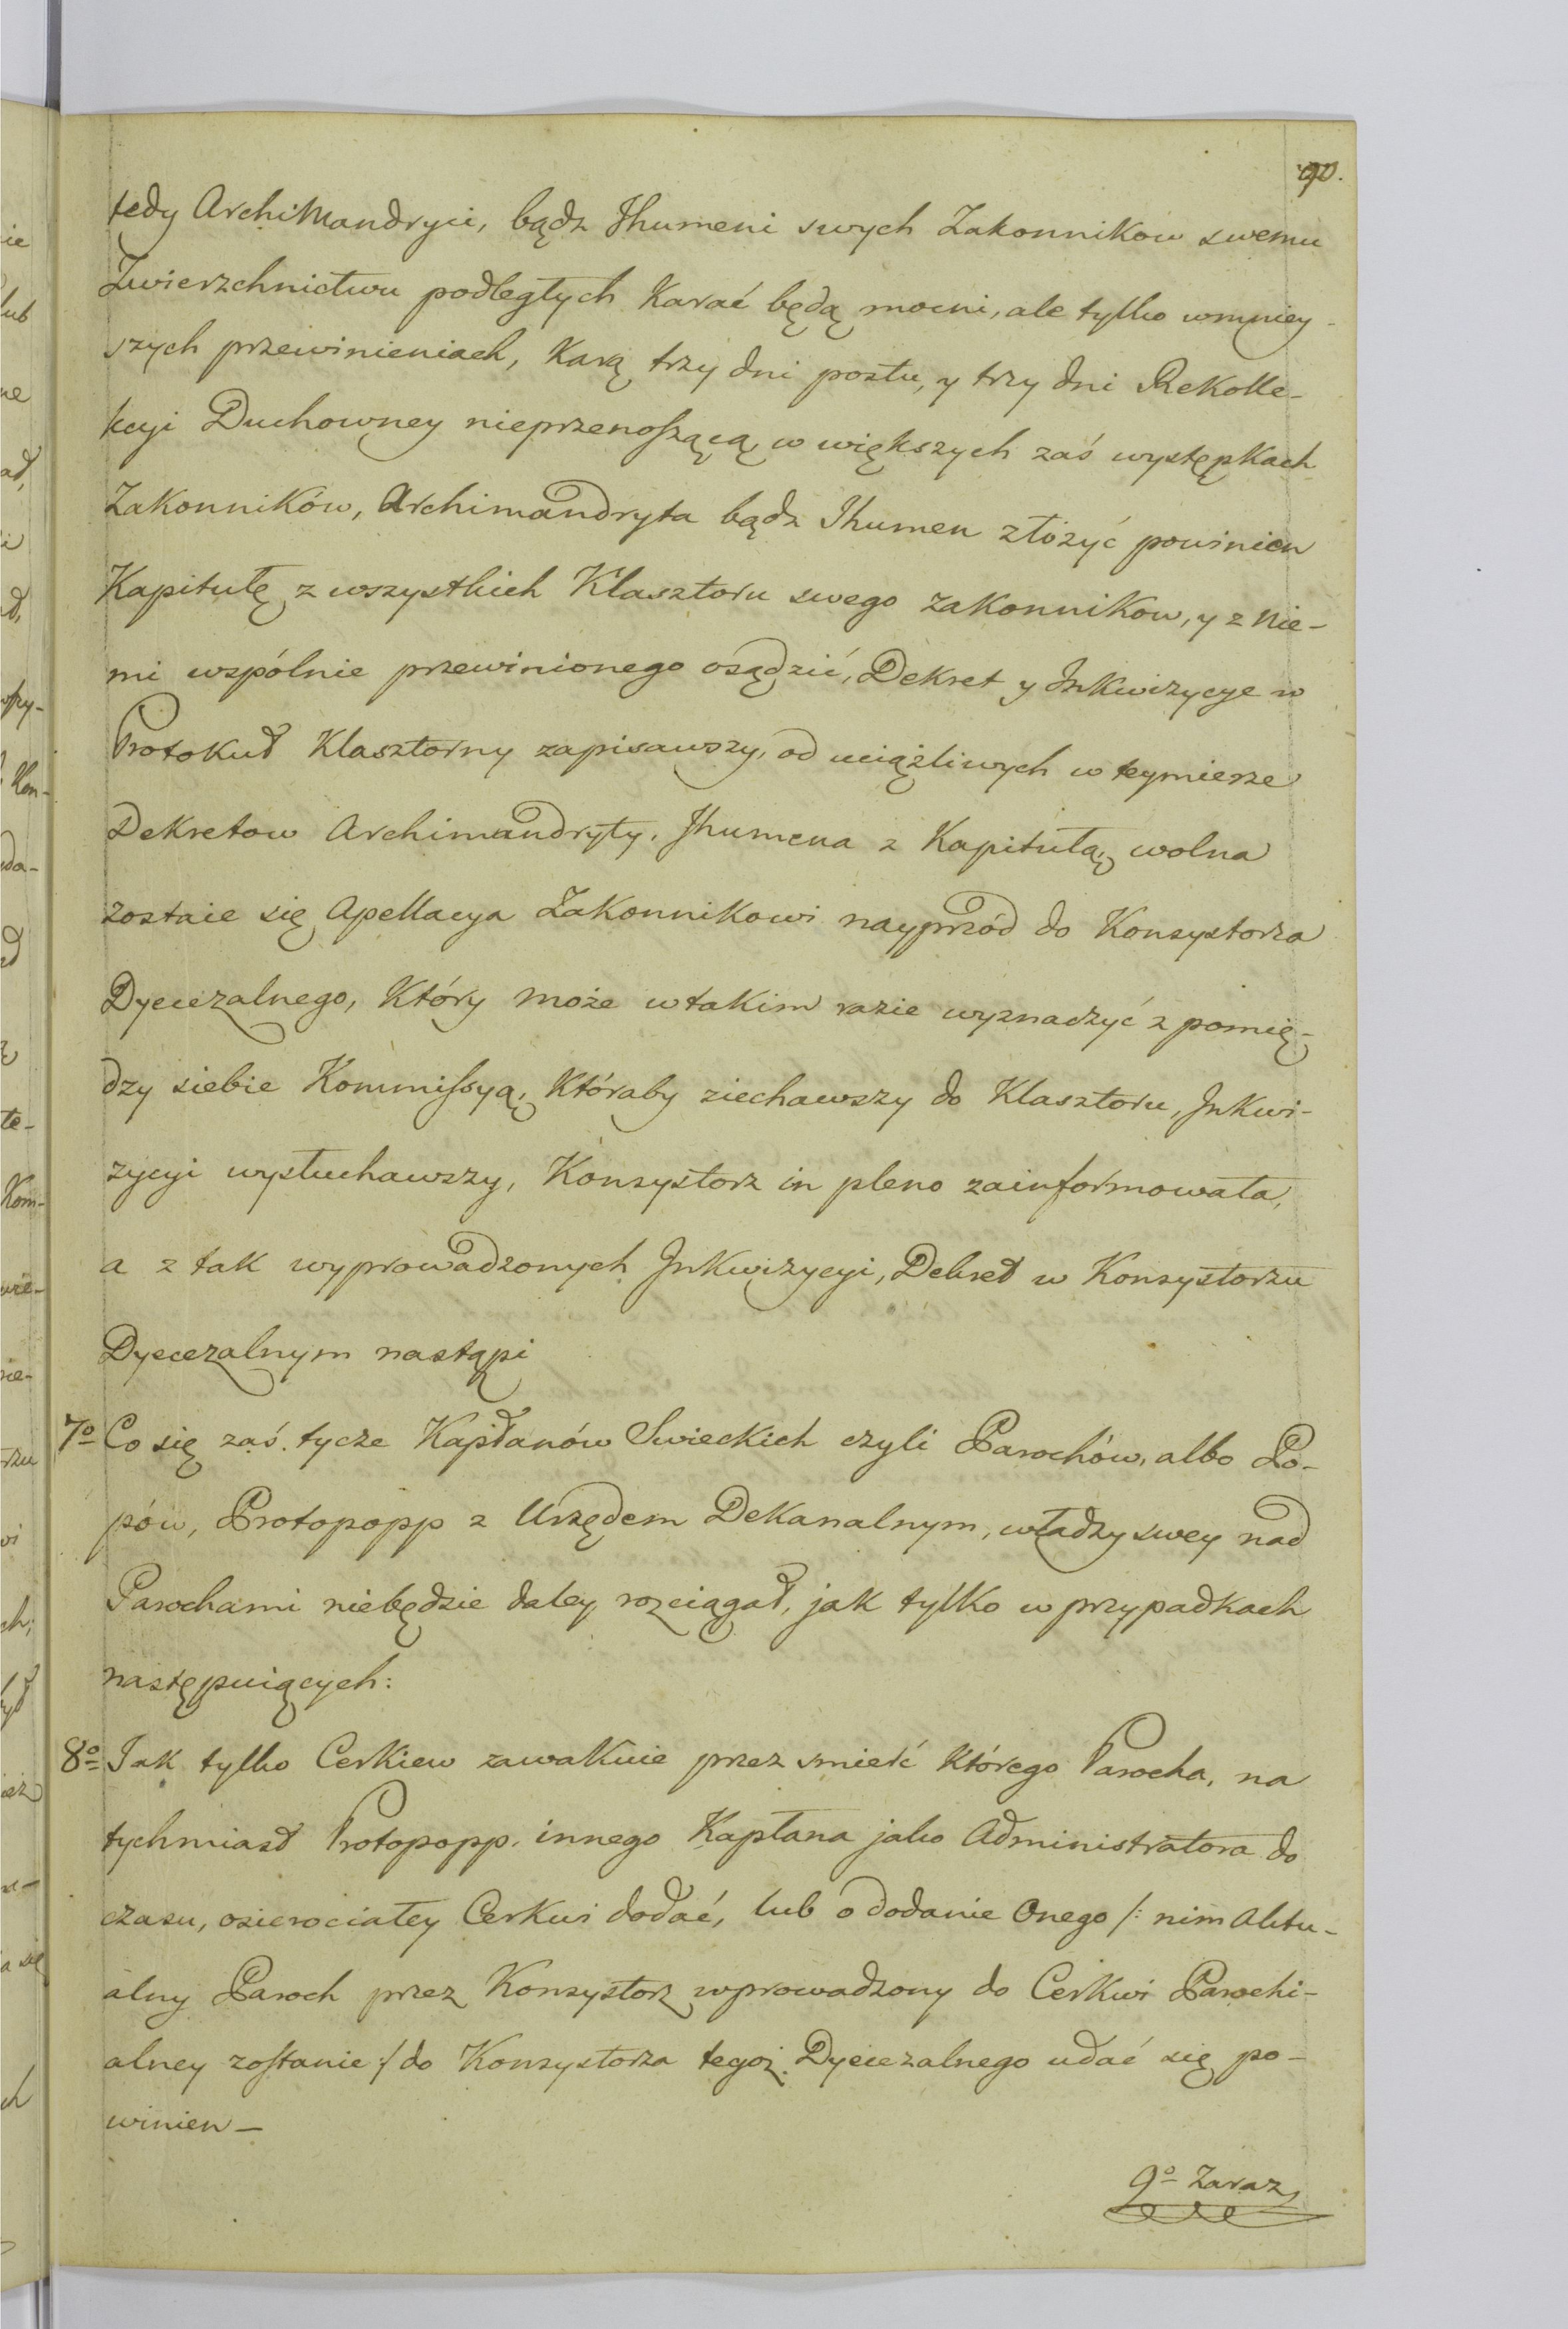 90.
tedy ArchiMandryci, bądz Jhumeni swych Zakonników swemu
Zwierzchnictwu podległych Karać będą mocni, ale tylko wmniey-
szych przewinieniach, Karą trzy dni postu, y trzy dni Rekolle-
kcyi Duchowney nieprzenoszącą, w większych zaś występkach
Zakonników, Archimandryta bądz Jhumen złożyć powinien
Kapitułę z wszystkich Klasztoru swego zakonnikow, y z Nie-
mi wspólnie przewinionego osądzić, Dekret y Jnkwizycye w
Protokuł Klasztorny zapisawszy, od uciążliwych w teymierze
Dekretow Archimandryty, Jhumena z Kapitułą, wolna
zostaie się Apellacya Zakonnikowi nayprzód do Konsystorza
Dyecezalnego, Który może wtakim razie wyznaczyć z pomię-
dzy siebie Kommissyą, Któraby ziechawszy do Klasztoru, Jnkwi-
zycyi wysłuchawszy, Konsystorz in pleno zainformowała,
a z tak wyprowadzonych Jnkwizycyi, Dekret w Konsystorzu
Dyecezalnym nastąpi
7o Co się zaś tycze Kapłanów Swieckich czyli Parochów, albo Po-
pów, Protopopp z Urzędem Dekanalnym, władzy swey nad
Parochami niebędzie daley rozciągał, jak tylko w przypadkach
następuiących:
8o Jak tylko Cerkiew zawakuie przez smierć Którego Parocha, na
tychmiast Protopopp. innego Kapłana jako Administratora do
czasu, osierociałey Cerkwi dodać, lub o dodanie Onego /: nim Aktu-
alny Paroch przez Konsystorz wprowadzony do Cerkwi Parochi-
alney zostanie :/ do Konsystorza tegoż Dyecezalnego udać się po-
winien –
9o Zaraz